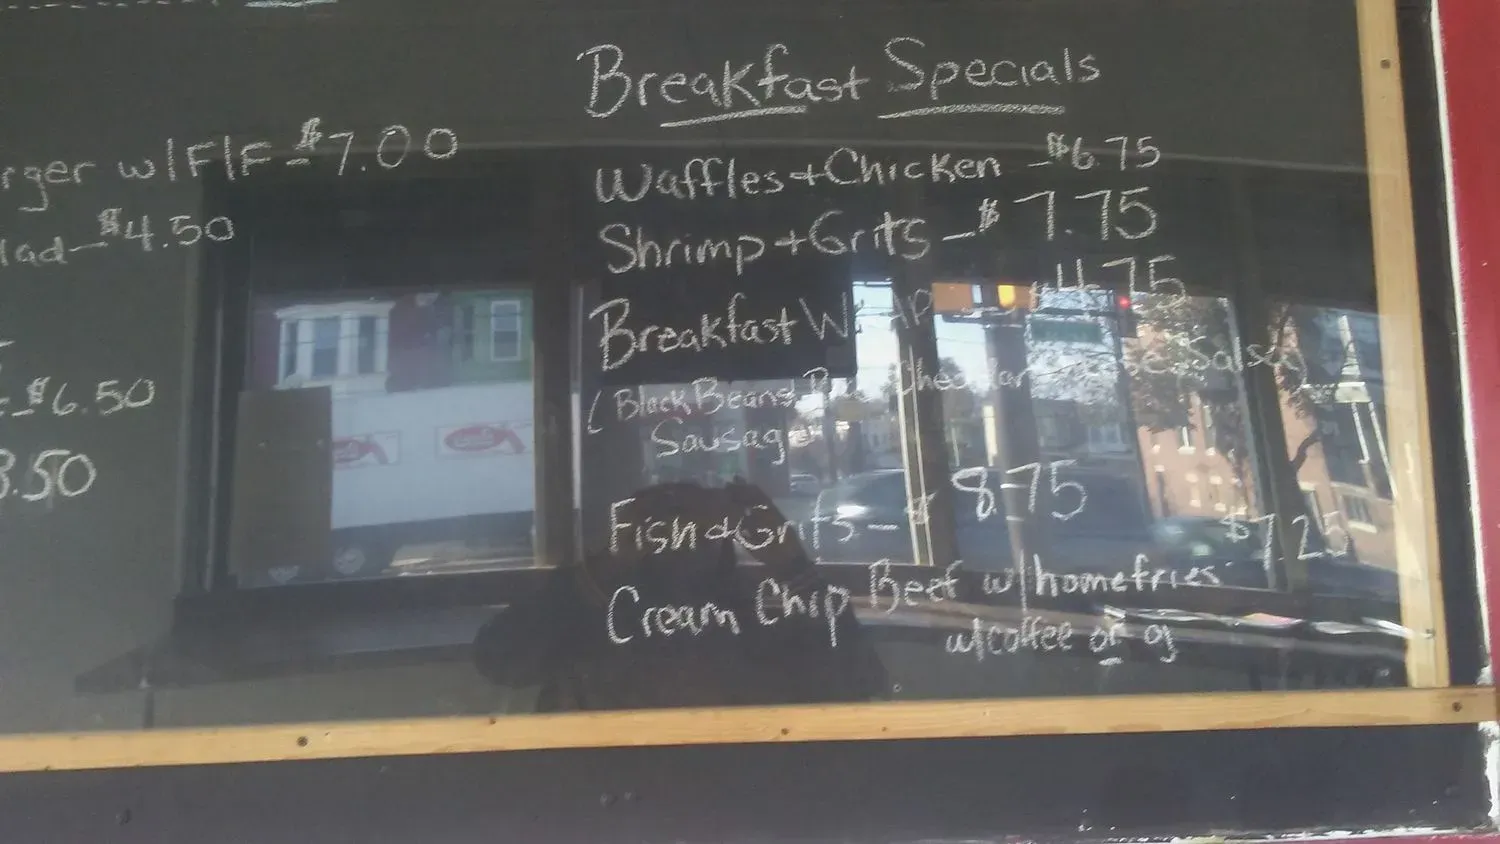 Breakfast Specials
rger w/F/F - $7.00
lad - $4.50
$6.50
3.50
Waffles + Chicken - $6.75
Shrimp + Grits - $7.75
Breakfast Wrap 4.75
(Black Beans Cheddar Salsa)
Sausage
Fish + Grits - $8.75
Cream Chip Beef w/homefries $7.25
w/coffee or oj